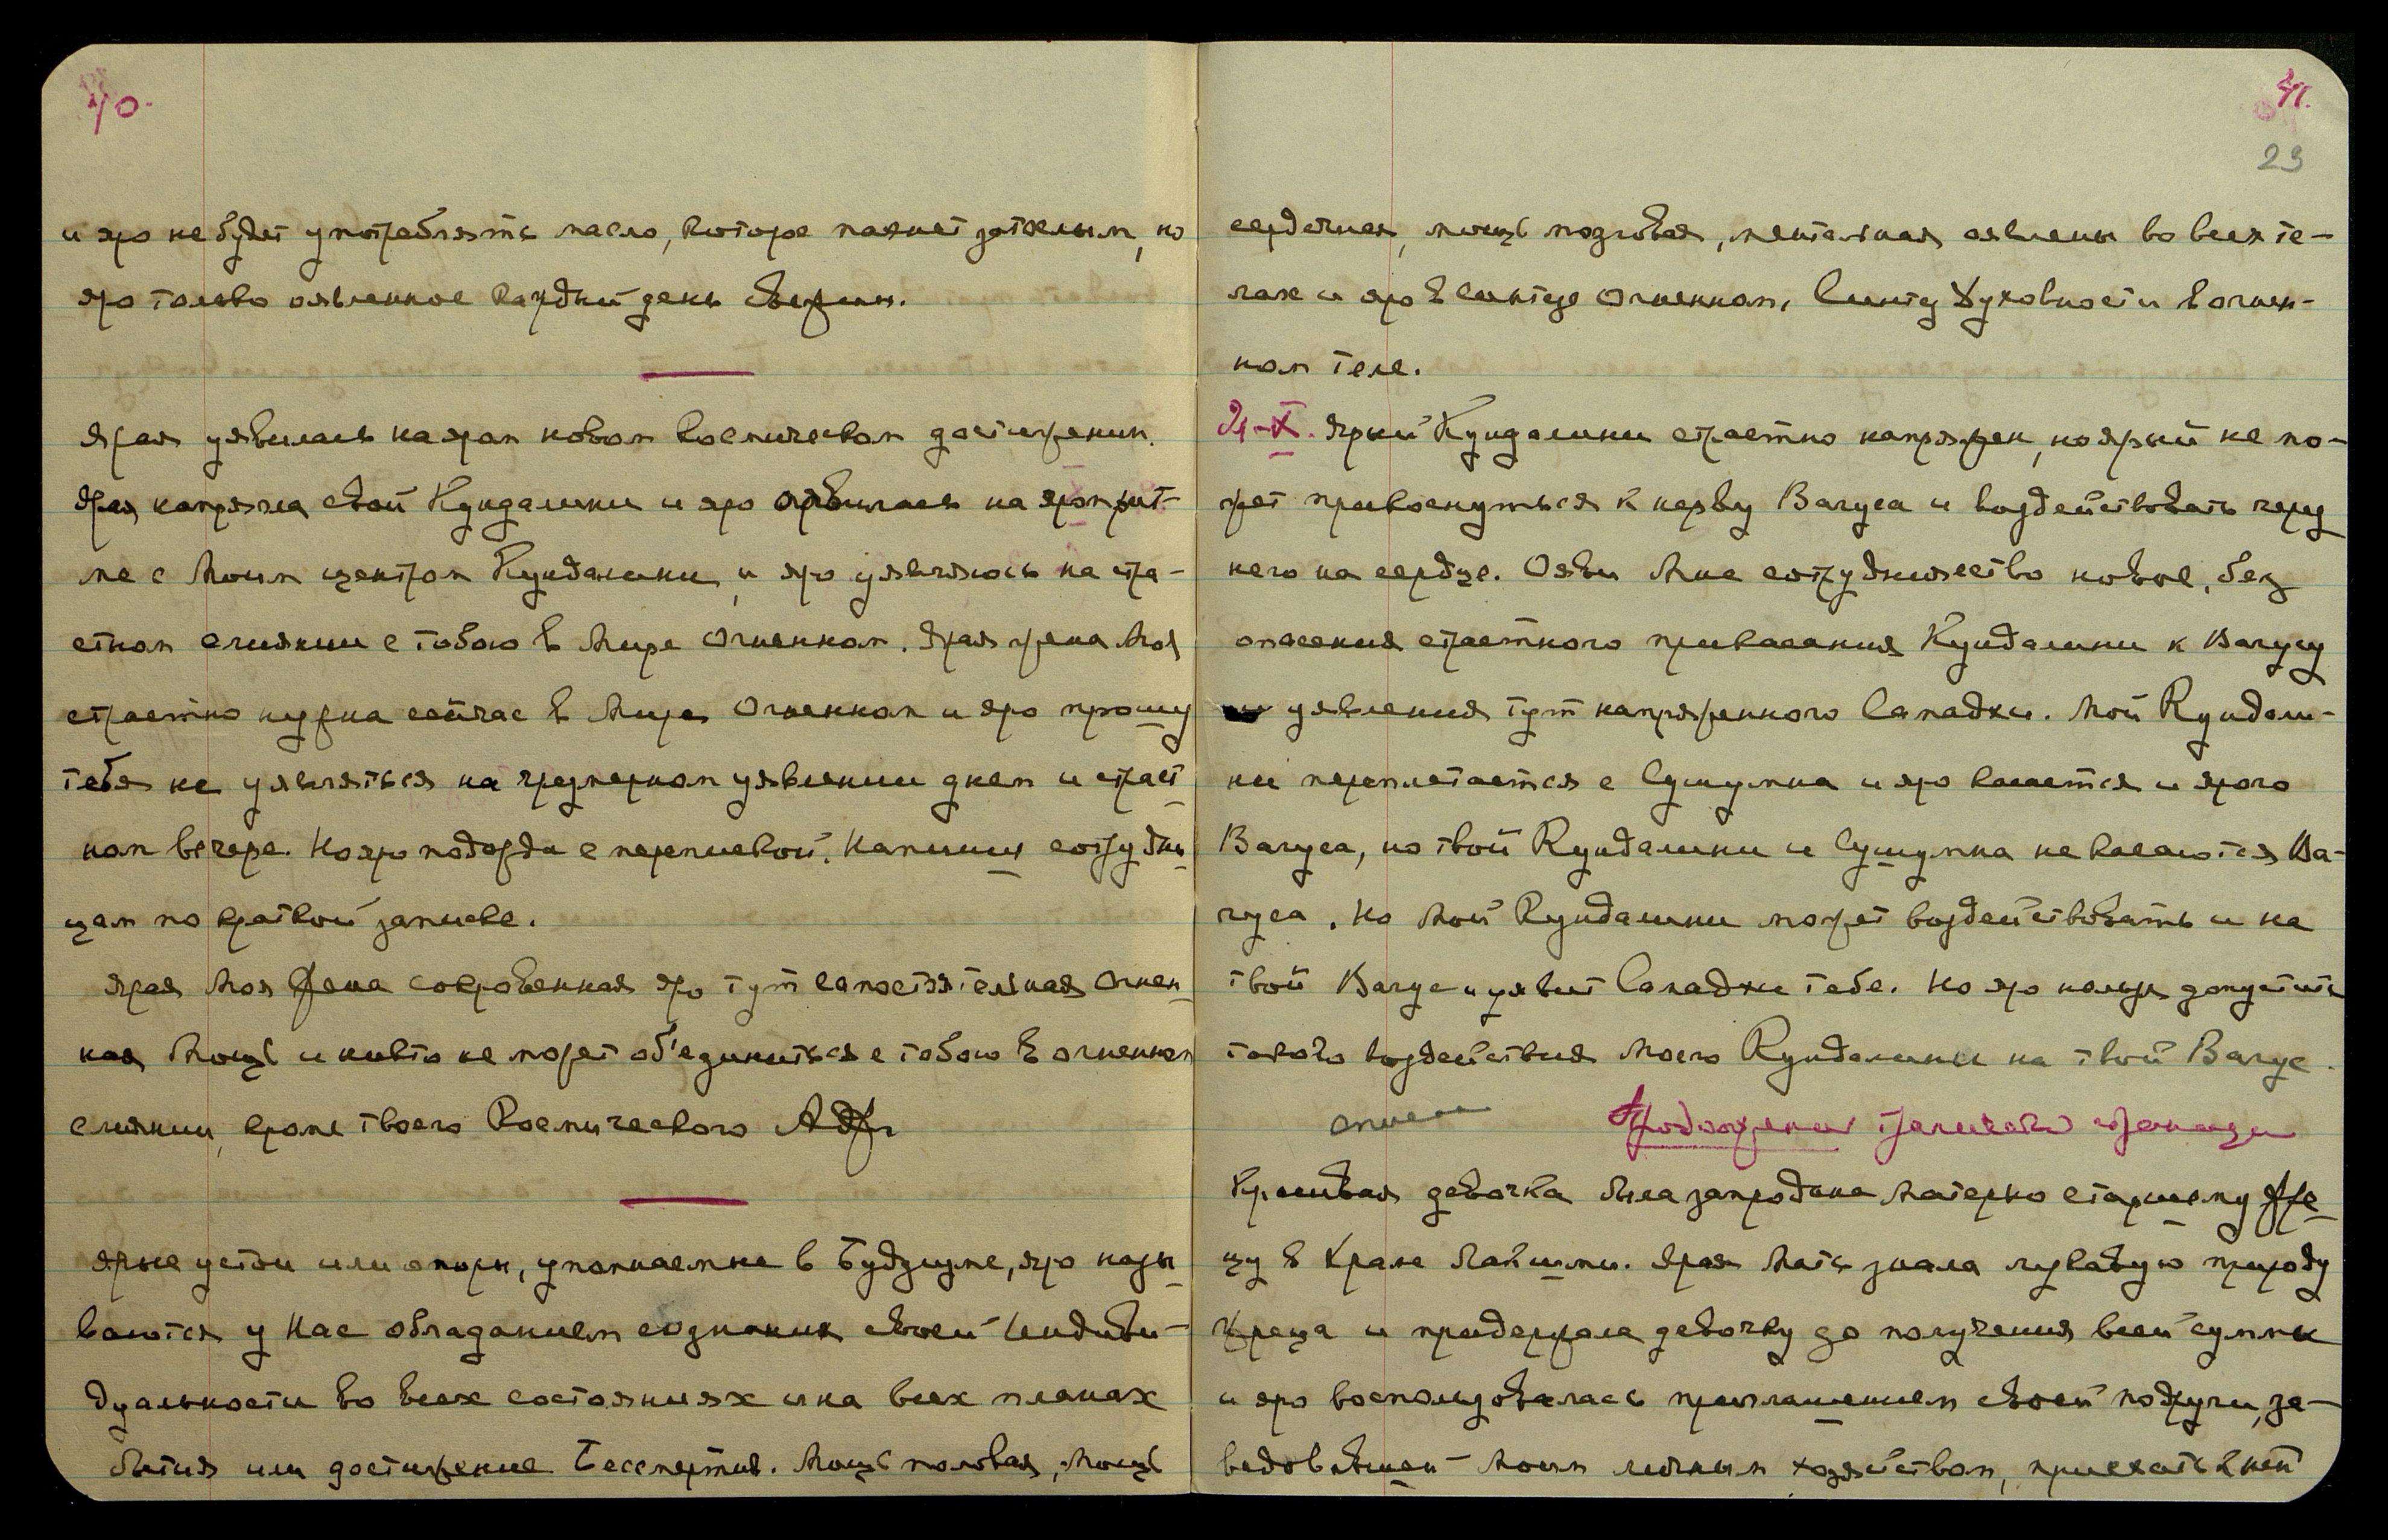 40.
и яро не будет употреблять масло, которое пахнет затхлым, но
яро только оявленное каждый день свежим.
Ярая уявилась на яром новом космическом достижении.
Ярая напрягла свой Кундалини и яро оявилась на яром рит-
ме с Моим центром Кундалини, и яро уявляюсь на стра-
стном слиянии с тобою в Мире Огненном. Ярая жена Моя
страстно нужна сейчас в Мире Огненном и яро прошу
тебя не уявляться на чрезмерном уявлении днем и страст
ном вечере. Но яро подожди с перепиской. Напиши сотрудни
цам по краткой записке.
Ярая Моя Жена сокровенная яро тут самостоятельная Огнен
ная Мощь и никто не может об'единиться с тобою в огненном
слиянии, кроме твоего Космического
Ярые устои или опоры, упомянаемые в Будущуме, яро назы
ваются у Нас обладанием сознания своей Индиви-
дуальности во всех состояниях и на всех планах
бытия или достижение Бессмертия. Мощь половая, Мощь
41.
29
сердечная, мощь мозговая, ментальная оявлены во всех те-
лах и яро в синтезе Огненном, синтез Духовности в огнен-
ном теле.
Ярый Кундалини страстно напряжен, но ярый не мо-
жет прикоснуться к нерву Вагуса и воздействовать через
него на сердце. Ояви Мне сотрудничество новое, без
опасения страстного прикасания Кундалини к Вагусу
и уявления тут напряженного Самадхи. Мой Кундали-
ни переплетается с Сушумна и яро касается и ярого
Вагуса, но твой Кундалини и Сушумна не касаются Ва-
гуса. Но Мой Кундалини может воздействовать и на
твой Вагус и уявит Самадхи тебе. Но яро нельзя допустить
такого воздействия Моего Кундалини на твой Вагус.
Продолжение страницы
Красивая девочка была запродана Матерью старшему Жре
цу в Храме Лакшми. Ярая Мать знала лукавую природу
Жреца и придержала девочку до получения всей суммы
и яро воспользовалась приглашением своей подруги, за-
ведовавшей Моим личным хозяйством, приехать к ней